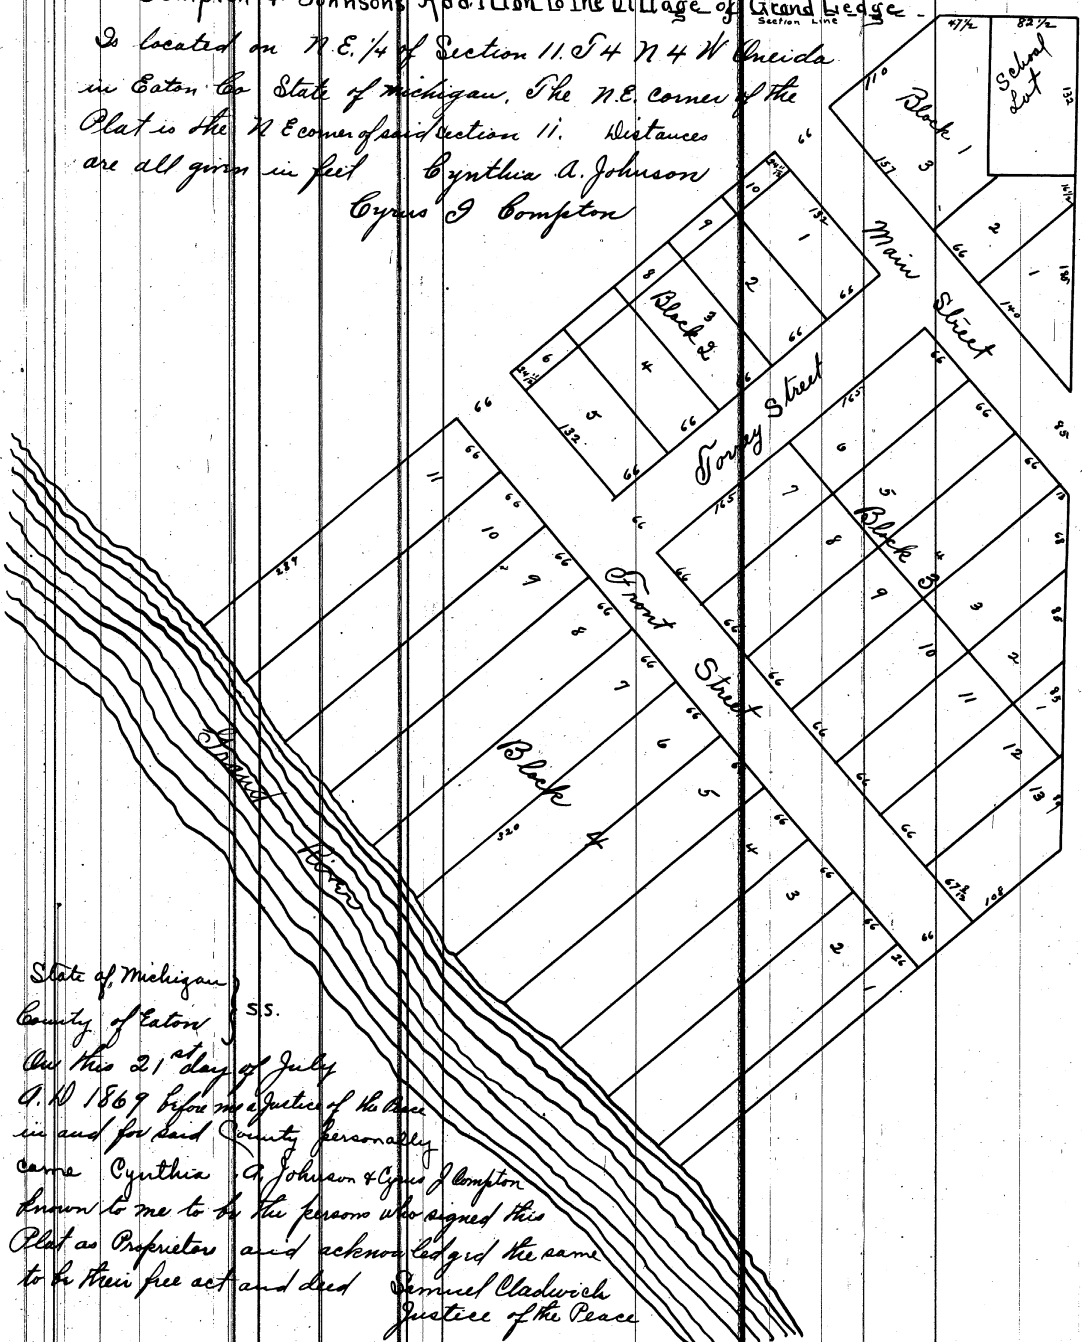 Compton & Johnsons Addition to the Village of Grand Ledge
Section Line
Is located on N.E. 1/4 of Section 11. T 4 N 4 W Oneida
in Eaton Co State of Michigan. The N.E. corner of the
Plat is the N E corner of said Section 11. Distances
are all given in feet Cynthia A. Johnson
Cyrus J Compton
47 1/2 82 1/2
School
Lot
132
110
Block 1
3
157
66
2
1
66
140
Main Street
10
9
8
6
132
1
2
3
4
5
Block 2
132
66
66
66
66
66
66
Torrey Street
165
165
66
66
66
85
68
6
5
4
3
2
1
Block 3
7
8
9
10
11
12
13
66
66
66
66
66
66
66
108
Front Street
66
66
66
66
66
66
66
66
66
66
26
66
11
10
9
8
7
6
5
4
3
2
1
Block 4
320
Grand River
State of Michigan
County of Eaton } S.S.
On this 21st day of July
A.D 1869 before me a Justice of the Peace
in and for said County personally
came Cynthia A. Johnson & Cyrus J Compton
known to me to be the persons who signed this
Plat as Proprietors and acknowledged the same
to be their free act and deed Samuel Cladwich
Justice of the Peace